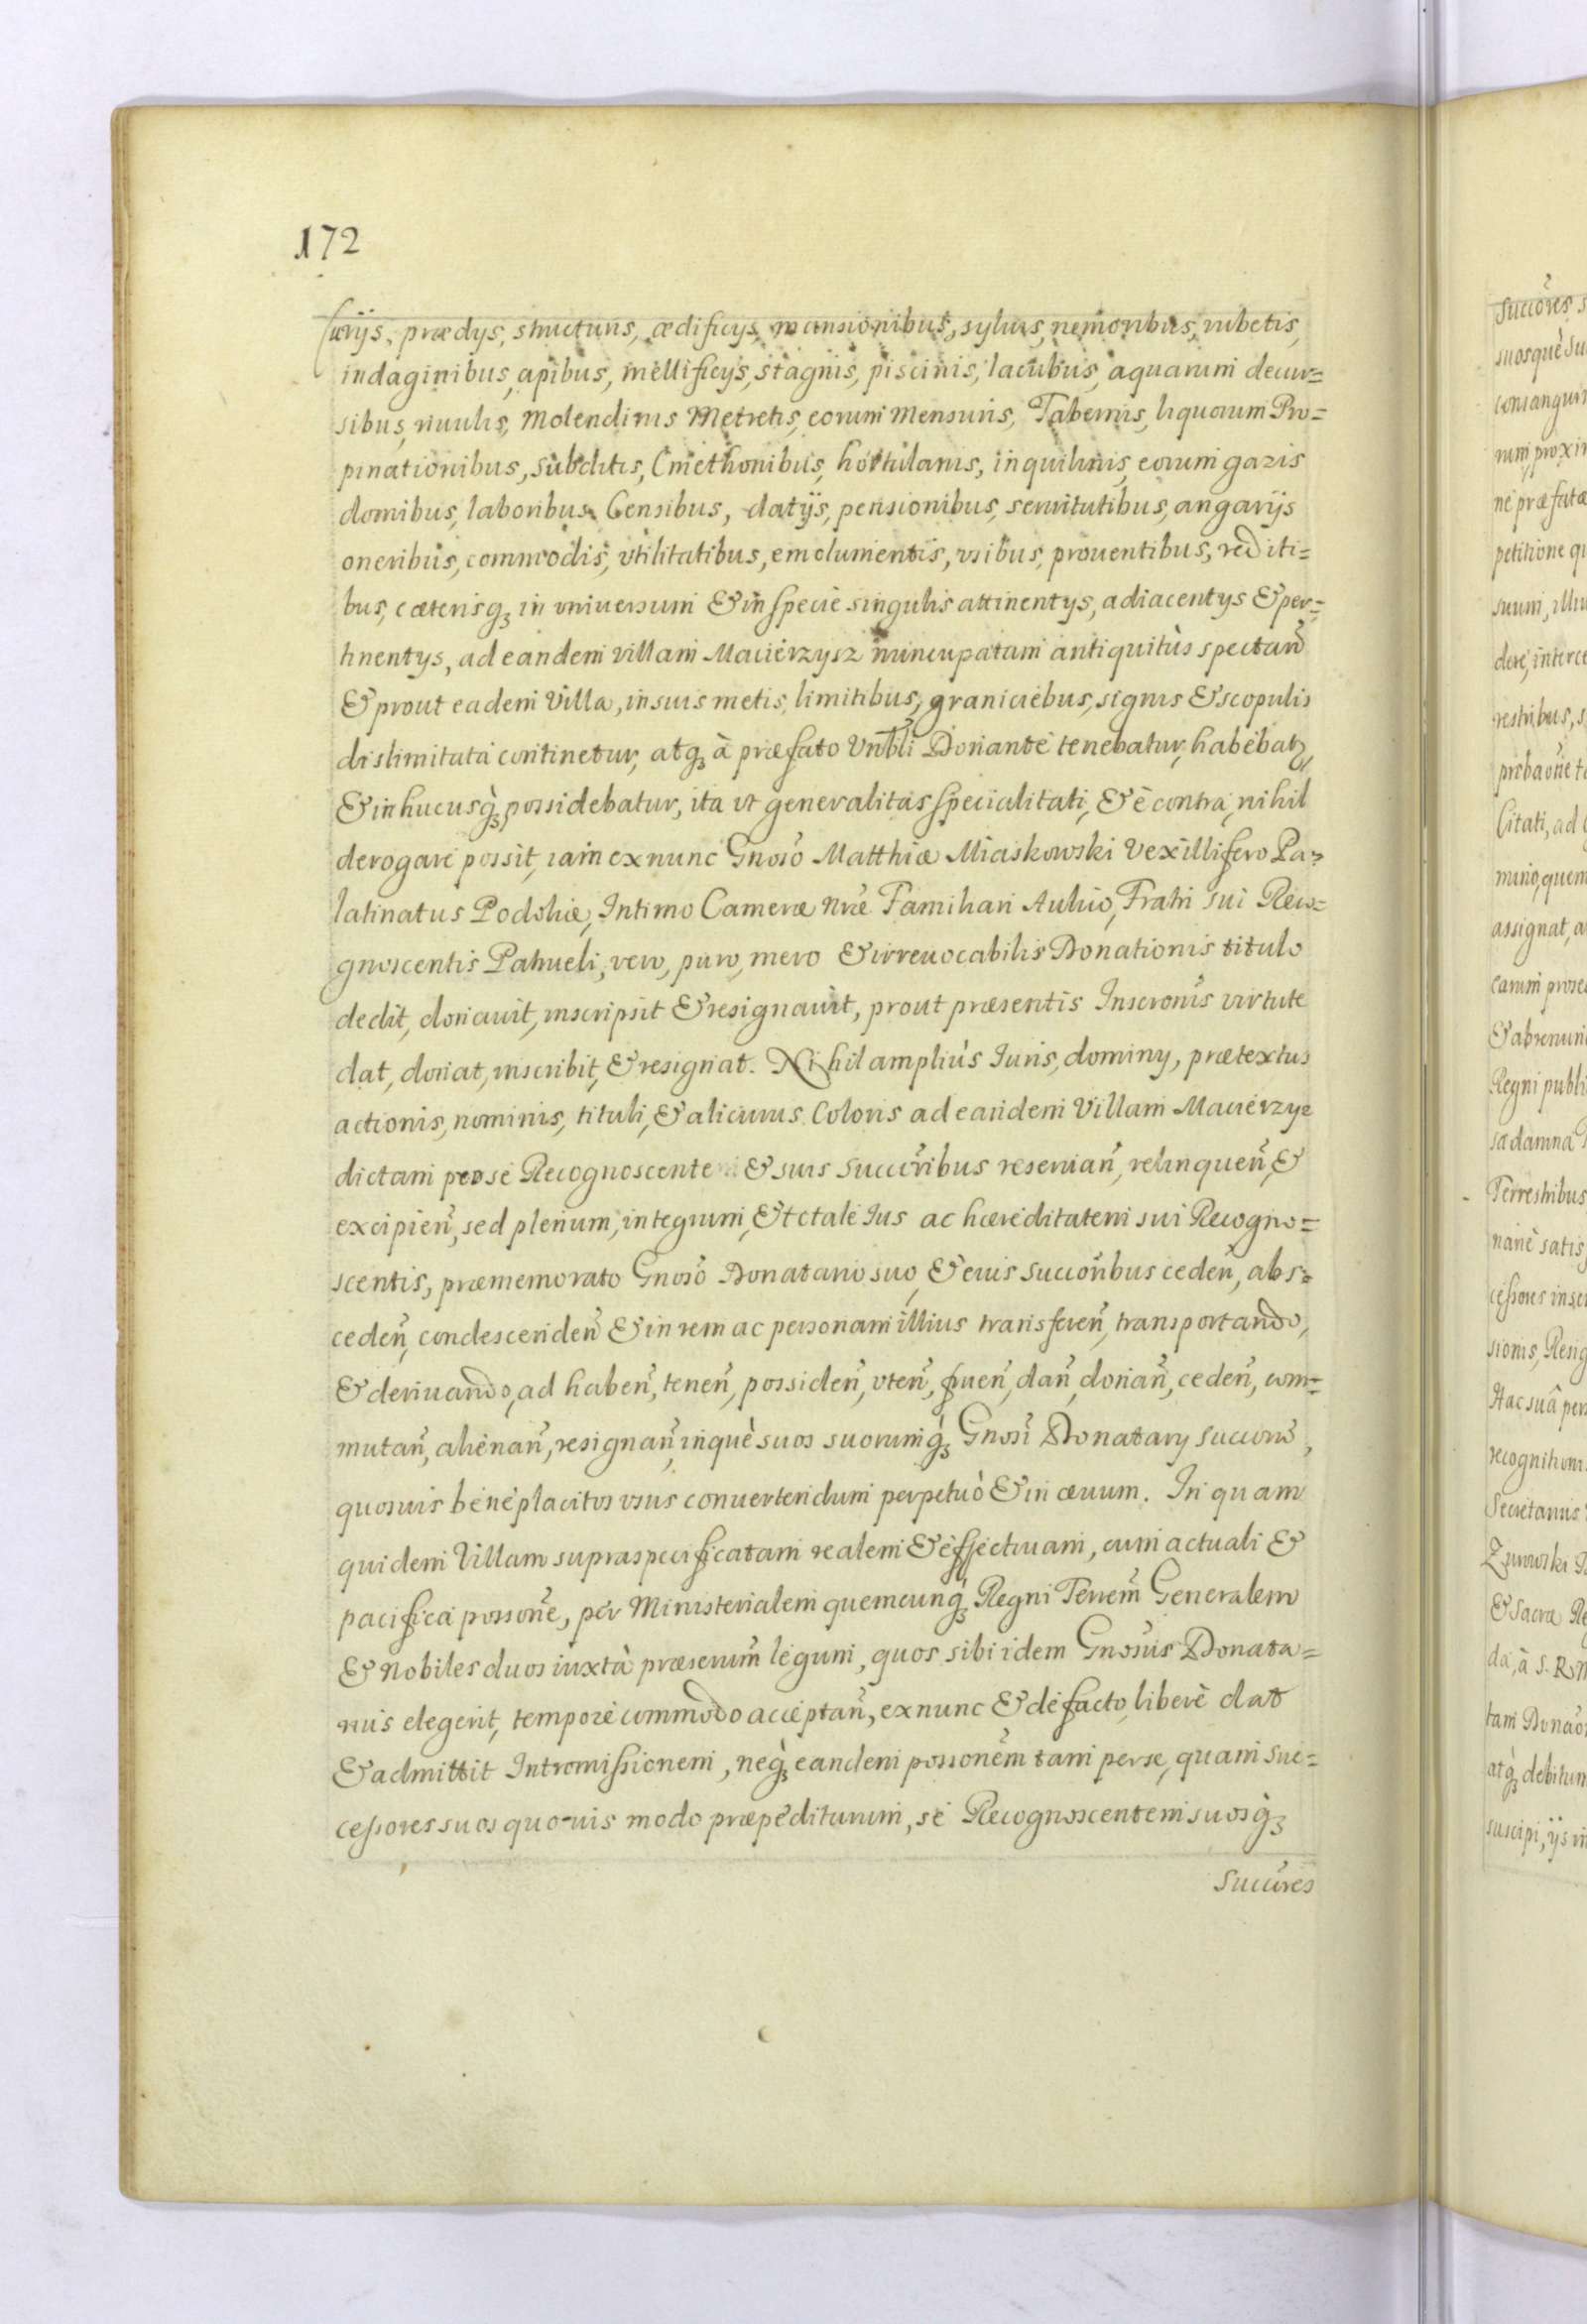 172
furijs, prædys, structuris, ædificys, mansionibus, syluis, nemoribus, rubetis,
indaginibus, apibus, mellificys, stagnis, piscinis, lacubus, aquarum decur=
sibus, riuulis, Molendinis Metretis, eorum Mensuris, Tabernis, liquorum Pro=
pinationibus, subditis, Cmethonibus, hortulanis, inquilinis, eorum gazis
domibus, laboribus Censibus, datijs, pensionibus, seruitutibus, angarijs
oneribus, commodis, vtilitatibus, emolumentis, vsibus, prouentibus, rediti=
bus, cæterisqꝫ in vniuersum & in specie singulis attinentys, adiacentys & per=
tinentys, ad eandem villam Macierzysz nuncupatam antiquitùs spectañ
& prout eadem Villa, in suis metis, limitibus, graniciebus, signis & scopulis
dislimitata continetur, atqꝫ à præfato Vrbli Donante tenebatur, habebatꝛ
& in hucusqꝫ possidebatur, ita vt generalitas specialitati, & è contra, nihil
derogare possit, iam ex nunc Gnoso Matthiæ Miaskowski Vexillifero Pa=
latinatus Podoliæ, Intimo Cameræ Nræ Familiari Aulico, Fratri sui Reco=
gnoscentis Patrueli, vero, puro, mero & irreuocabilis Donationis titulo
dedit, donauit, inscripsit & resignauit, prout præsentis Inscronis virtute
dat, donat, inscribit, & resignat. Nihil ampliùs Iuris, dominy, prætextus
actionis, nominis, tituli, & alicuius Coloris ad eandem Villam Macierzysz
dictam pro se Recognoscente & suis succoribus reseruañ, relinqueñ, &
excipieñ, sed plenum, integrum, & totale Ius ac hæreditatem sui Recogno=
scentis, præmemorato Gnoso Donatario suo, & eius succoribus cedeñ, abs=
cedeñ, condescendeñ & in rem ac personam illius transfereñ, transportando,
& deriuando, ad habeñ, teneñ, possideñ, vteñ, frueñ, dañ, donañ, cedeñ, com=
mutañ, alienañ, resignañ, inquè suos suorumqꝫ Gnosi Donatary succorũ,
quosuis beneplacitos vsus conuertendum perpetuò & in æuum. In quam
quidem Villam supraspecificatam realem & effectiuam, cum actuali &
pacifica possone, per Ministerialem quemcunqꝫ Regni Terrem̃ Generalem
& Nobiles duos iuxtà præscrium̃ legum, quos sibi idem Gnosus Donata=
rius elegerit, tempore commodo acceptañ, ex nunc & de facto, liberè dat
& admittit Intromissionem, neqꝫ eandem possonem tam per se, quam Suc=
cessores suos quo-uis modo præpediturum, se Recognoscentem suosqꝫ
Succores